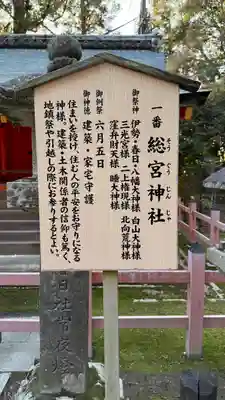 一番
総宮神社
そうぐうじんじゃ
御祭神
伊勢・春日・八幡大神様 白山大神様
三光宮様 上権現様 北向荒神様
窪弁財天様 睡大神様
御例祭
六月五日
御神徳
建築・家宅守護
住まいを授け、住む人の平安をお守りになる
神様。建築・土木関係者の信仰も篤く、
地鎮祭や引越しの際にお参りするとよい。
日社常夜燈